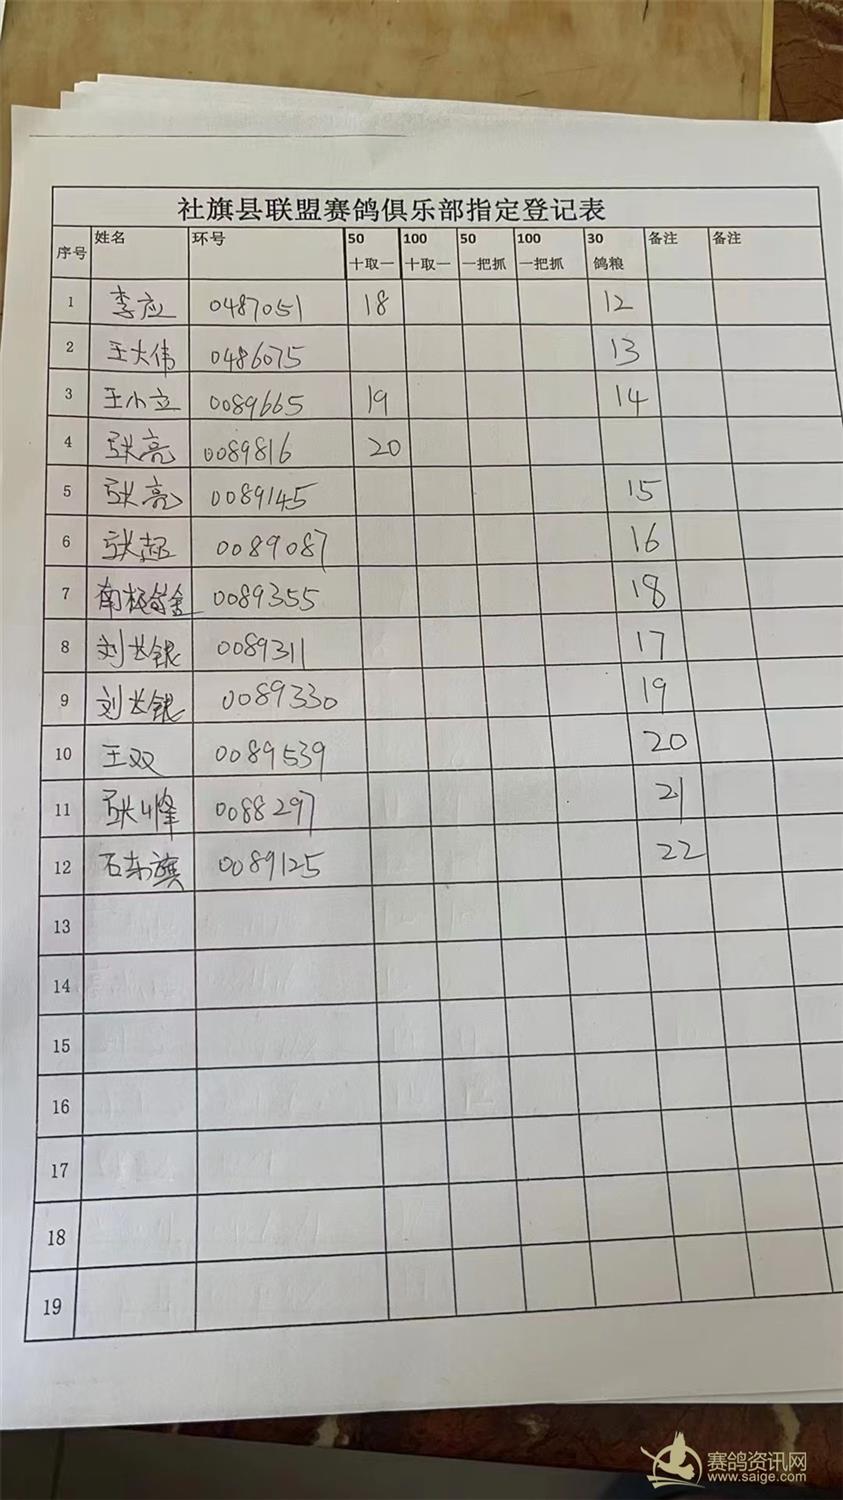 社旗县联盟赛鸽俱乐部指定登记表
序号 姓名 环号 50 十取一 100 十取一 50 一把抓 100 一把抓 30 鸽粮 备注 备注
1 李应 0487051 18 12
2 王大伟 0486075 13
3 王小立 0089665 19 14
4 张亮 0089816 20
5 张亮 0089145 15
6 张超 0089087 16
7 南 0089355 18
8 刘长银 0089311 17
9 刘长银 0089330 19
10 王双 0089539 20
11 张峰 0088297 21
12 石东旗 0089125 22
13
14
15
16
17
18
19
赛鸽资讯网
www.saige.com